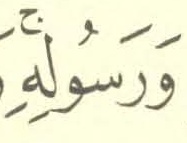 وَرَسُولِهِۚ